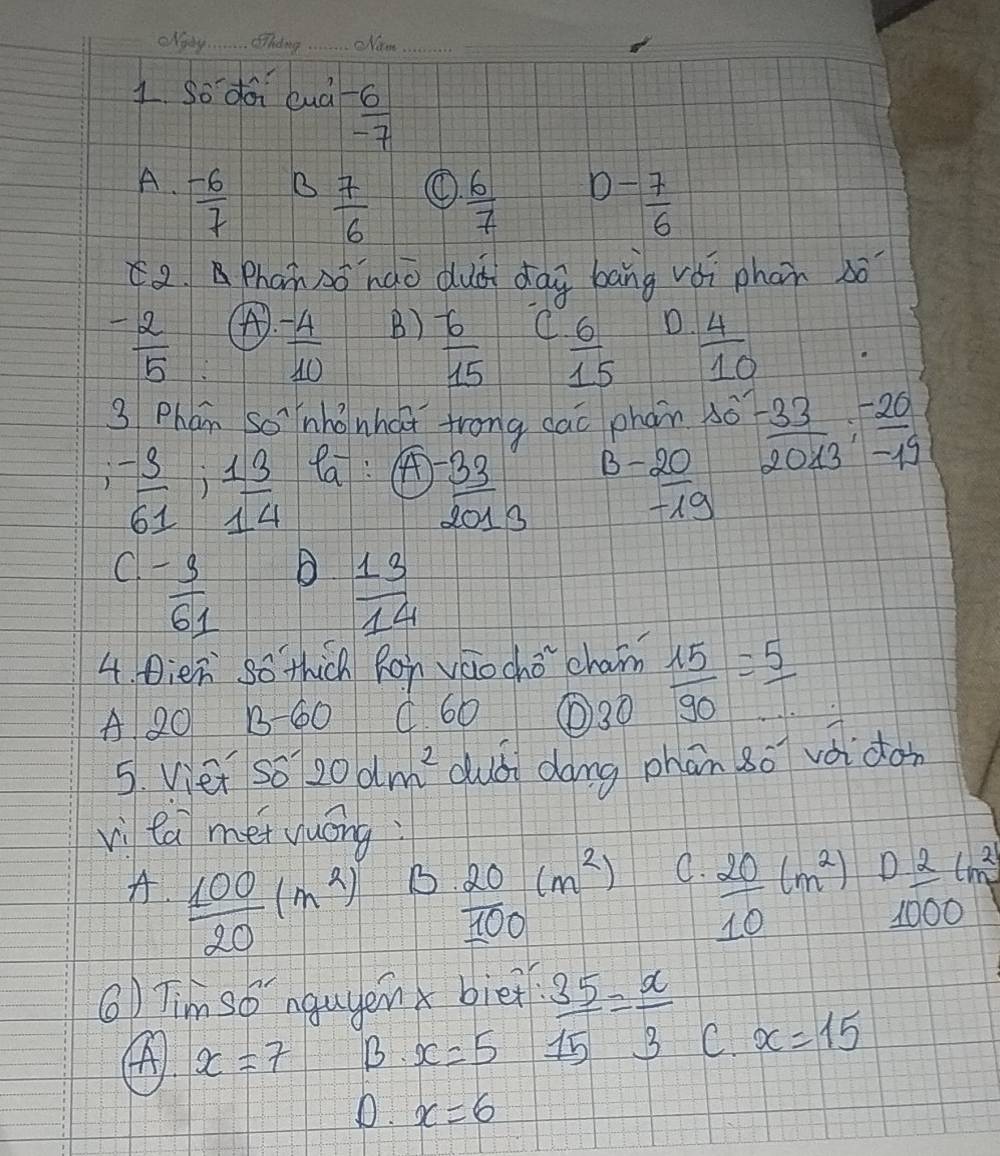 Ngày........ Tháng ........ Năm ..........
1. Số đối của -6/-7
A. -6/7 B 7/6 C. 6/7 D -7/6
2. Phân số nào dưới đây bằng với phân số
-2/5 : A. -4/10 B) -6/15 C. 6/15 D. 4/10
3 Phân số nhỏ nhất trong các phân số -33/2013 ; -20/-19
; -3/61 ; 13/14 là : A -33/2013 B -20/-19
C. -3/61 D. 13/14
4. Điền số thích hợp vào chỗ chấm 15/90 = 5/...
A 20 B -60 C. 60 D 30
5. Viết số 20dm² dưới dạng phân số với đơn
vị là mét vuông :
A. 100/20 (m²) B. 20/100 (m²) C. 20/10 (m²) D 2/1000 (m²)
6) Tìm số nguyên x biết : 35/15 = x/3
A. x = 7 B. x = 5 C. x = 15
D. x = 6